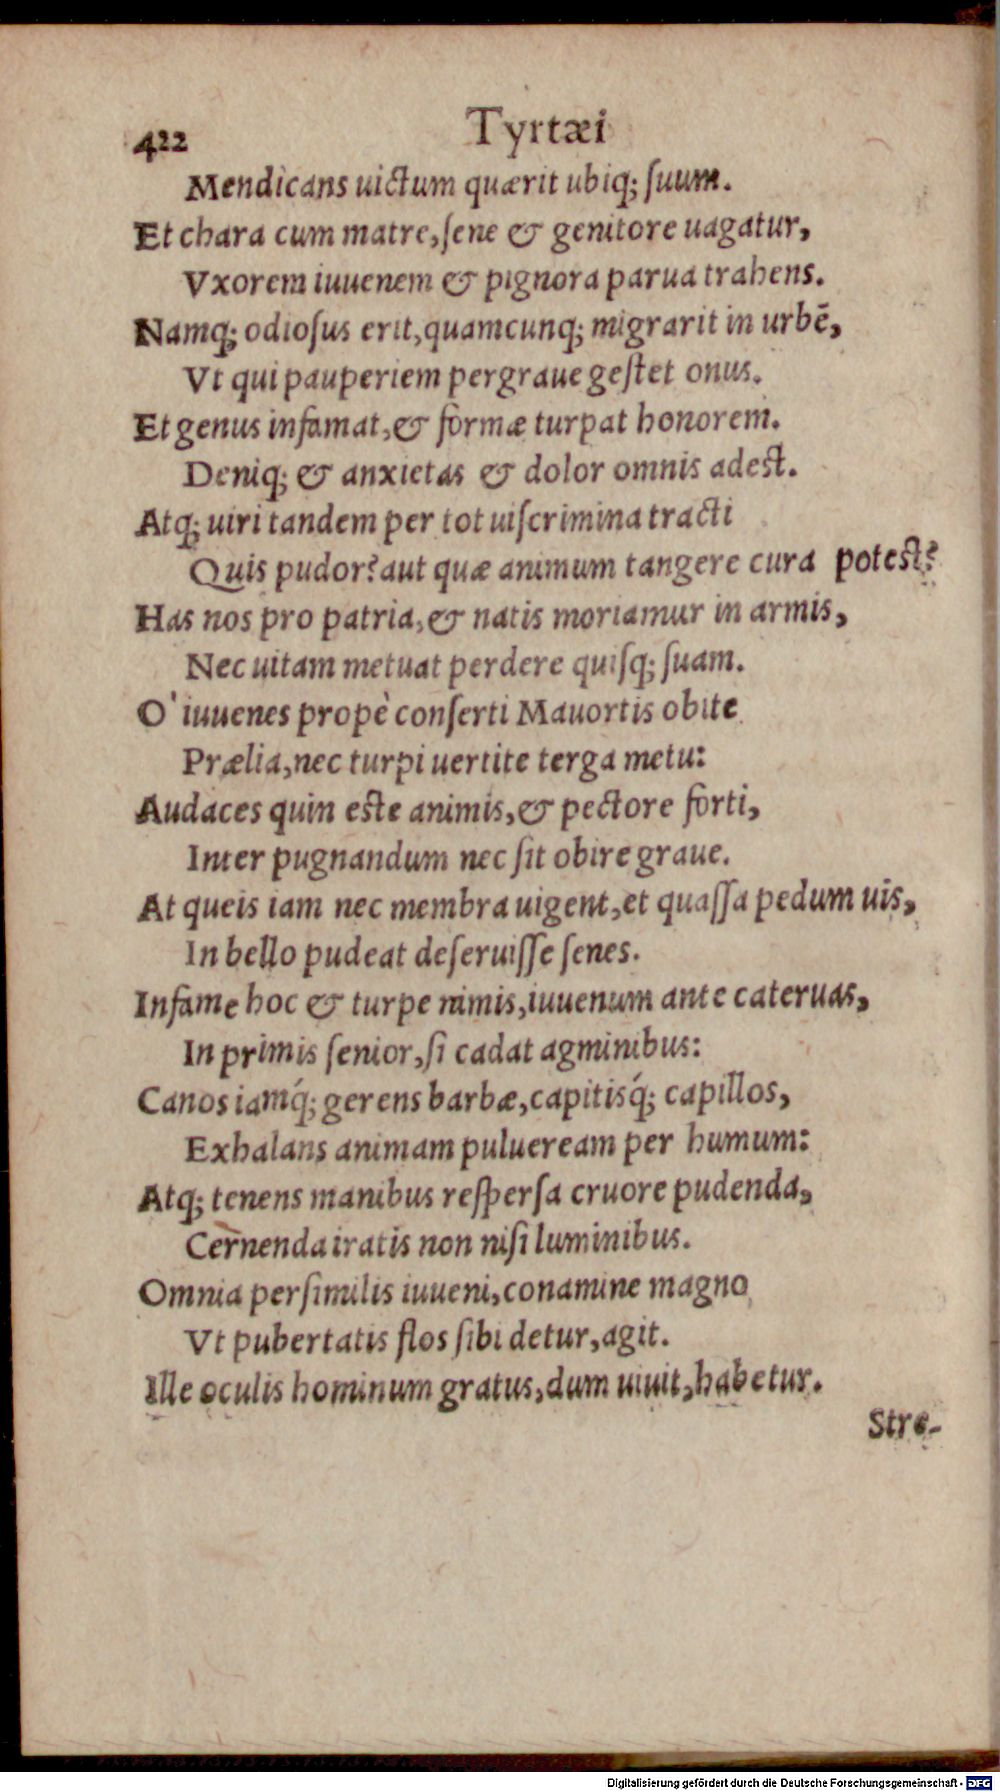 422 Tyrtæi
Mendicans uictum quærit ubiq; ſuum.
Et chara cum matre, ſene & genitore uagatur,
Vxorem iuuenem & pignora parua trahens.
Namq; odioſus erit, quamcunq; migrarit in urbē,
Vt qui pauperiem pergraue geſtet onus.
Et genus infamat, & formæ turpat honorem.
Deniq; & anxietas & dolor omnis adest.
Atq; uiri tandem per tot uiſcrimina tracti
Quis pudor? aut quæ animum tangere cura potest?
Has nos pro patria, & natis moriamur in armis,
Nec uitam metuat perdere quiſq; ſuam.
O' iuuenes propè conſerti Mauortis obite
Prælia, nec turpi uertite terga metu:
Audaces quin este animis, & pectore forti,
Inter pugnandum nec ſit obire graue.
At queis iam nec membra uigent, et quaſſa pedum uis,
In bello pudeat deſeruiſſe ſenes.
Infame hoc & turpe nimis, iuuenum ante cateruas,
In primis ſenior, ſi cadat agminibus:
Canos iamq́; gerens barbæ, capitisq́; capillos,
Exhalans animam pulueream per humum:
Atq; tenens manibus reſperſa cruore pudenda,
Cernenda iratis non niſi luminibus.
Omnia perſimilis iuueni, conamine magno
Vt pubertatis flos ſibi detur, agit.
Ille oculis hominum gratus, dum uiuit, habetur.
Stre-
Digitalisierung gefördert durch die Deutsche Forschungsgemeinschaft - DFG